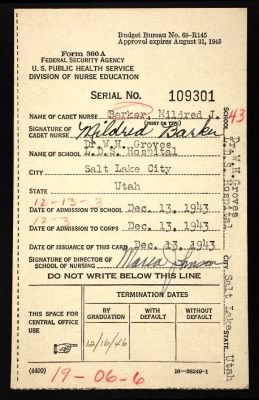 Budget Bureau No. 68-R145
Approval expires August 31, 1945
Form 300A
FEDERAL SECURITY AGENCY
U. S. PUBLIC HEALTH SERVICE
DIVISION OF NURSE EDUCATION
SERIAL NO. 109301
NAME OF CADET NURSE Barker, Mildred J.
(PRINT OR TYPE)
SIGNATURE OF CADET NURSE Mildred Barker
Dr. W.H. Groves
NAME OF SCHOOL L.D.S. Hospital
CITY Salt Lake City
STATE Utah
12-13-3
DATE OF ADMISSION TO SCHOOL Dec. 13, 1943
12-3
DATE OF ADMISSION TO CORPS Dec. 13, 1943
DATE OF ISSUANCE OF THIS CARD Dec. 13, 1943
SIGNATURE OF DIRECTOR OF SCHOOL OF NURSING Maria Johnson
DO NOT WRITE BELOW THIS LINE
THIS SPACE FOR CENTRAL OFFICE USE
TERMINATION DATES
BY GRADUATION
WITH DEFAULT
WITHOUT DEFAULT
12/16/46
(4400)
16-38249-1
19-06-6
43
SCHOOL Dr. W.H. Groves
L.D.S. Hospital
CITY Salt Lake
STATE Utah